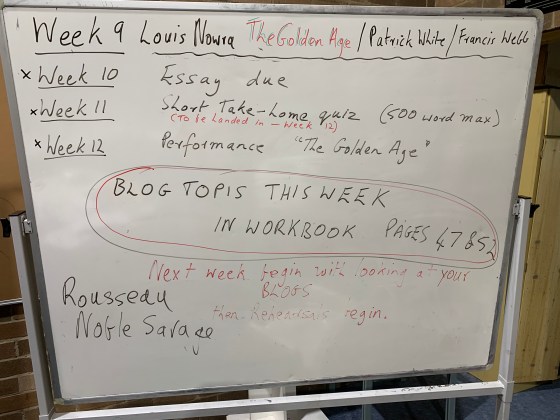 Week 9 Louis Nowra The Golden Age / Patrick White / Francis Webb
x Week 10 Essay due
x Week 11 Short Take-home quiz (500 word max)
(To be handed in - Week 12)
x Week 12 Performance "The Golden Age"
BLOG TOPIS THIS WEEK
IN WORKBOOK PAGES 47 & 52
Next week begin with looking at your
BLOGS
then Rehearsals begin.
Rousseau
Noble Savage